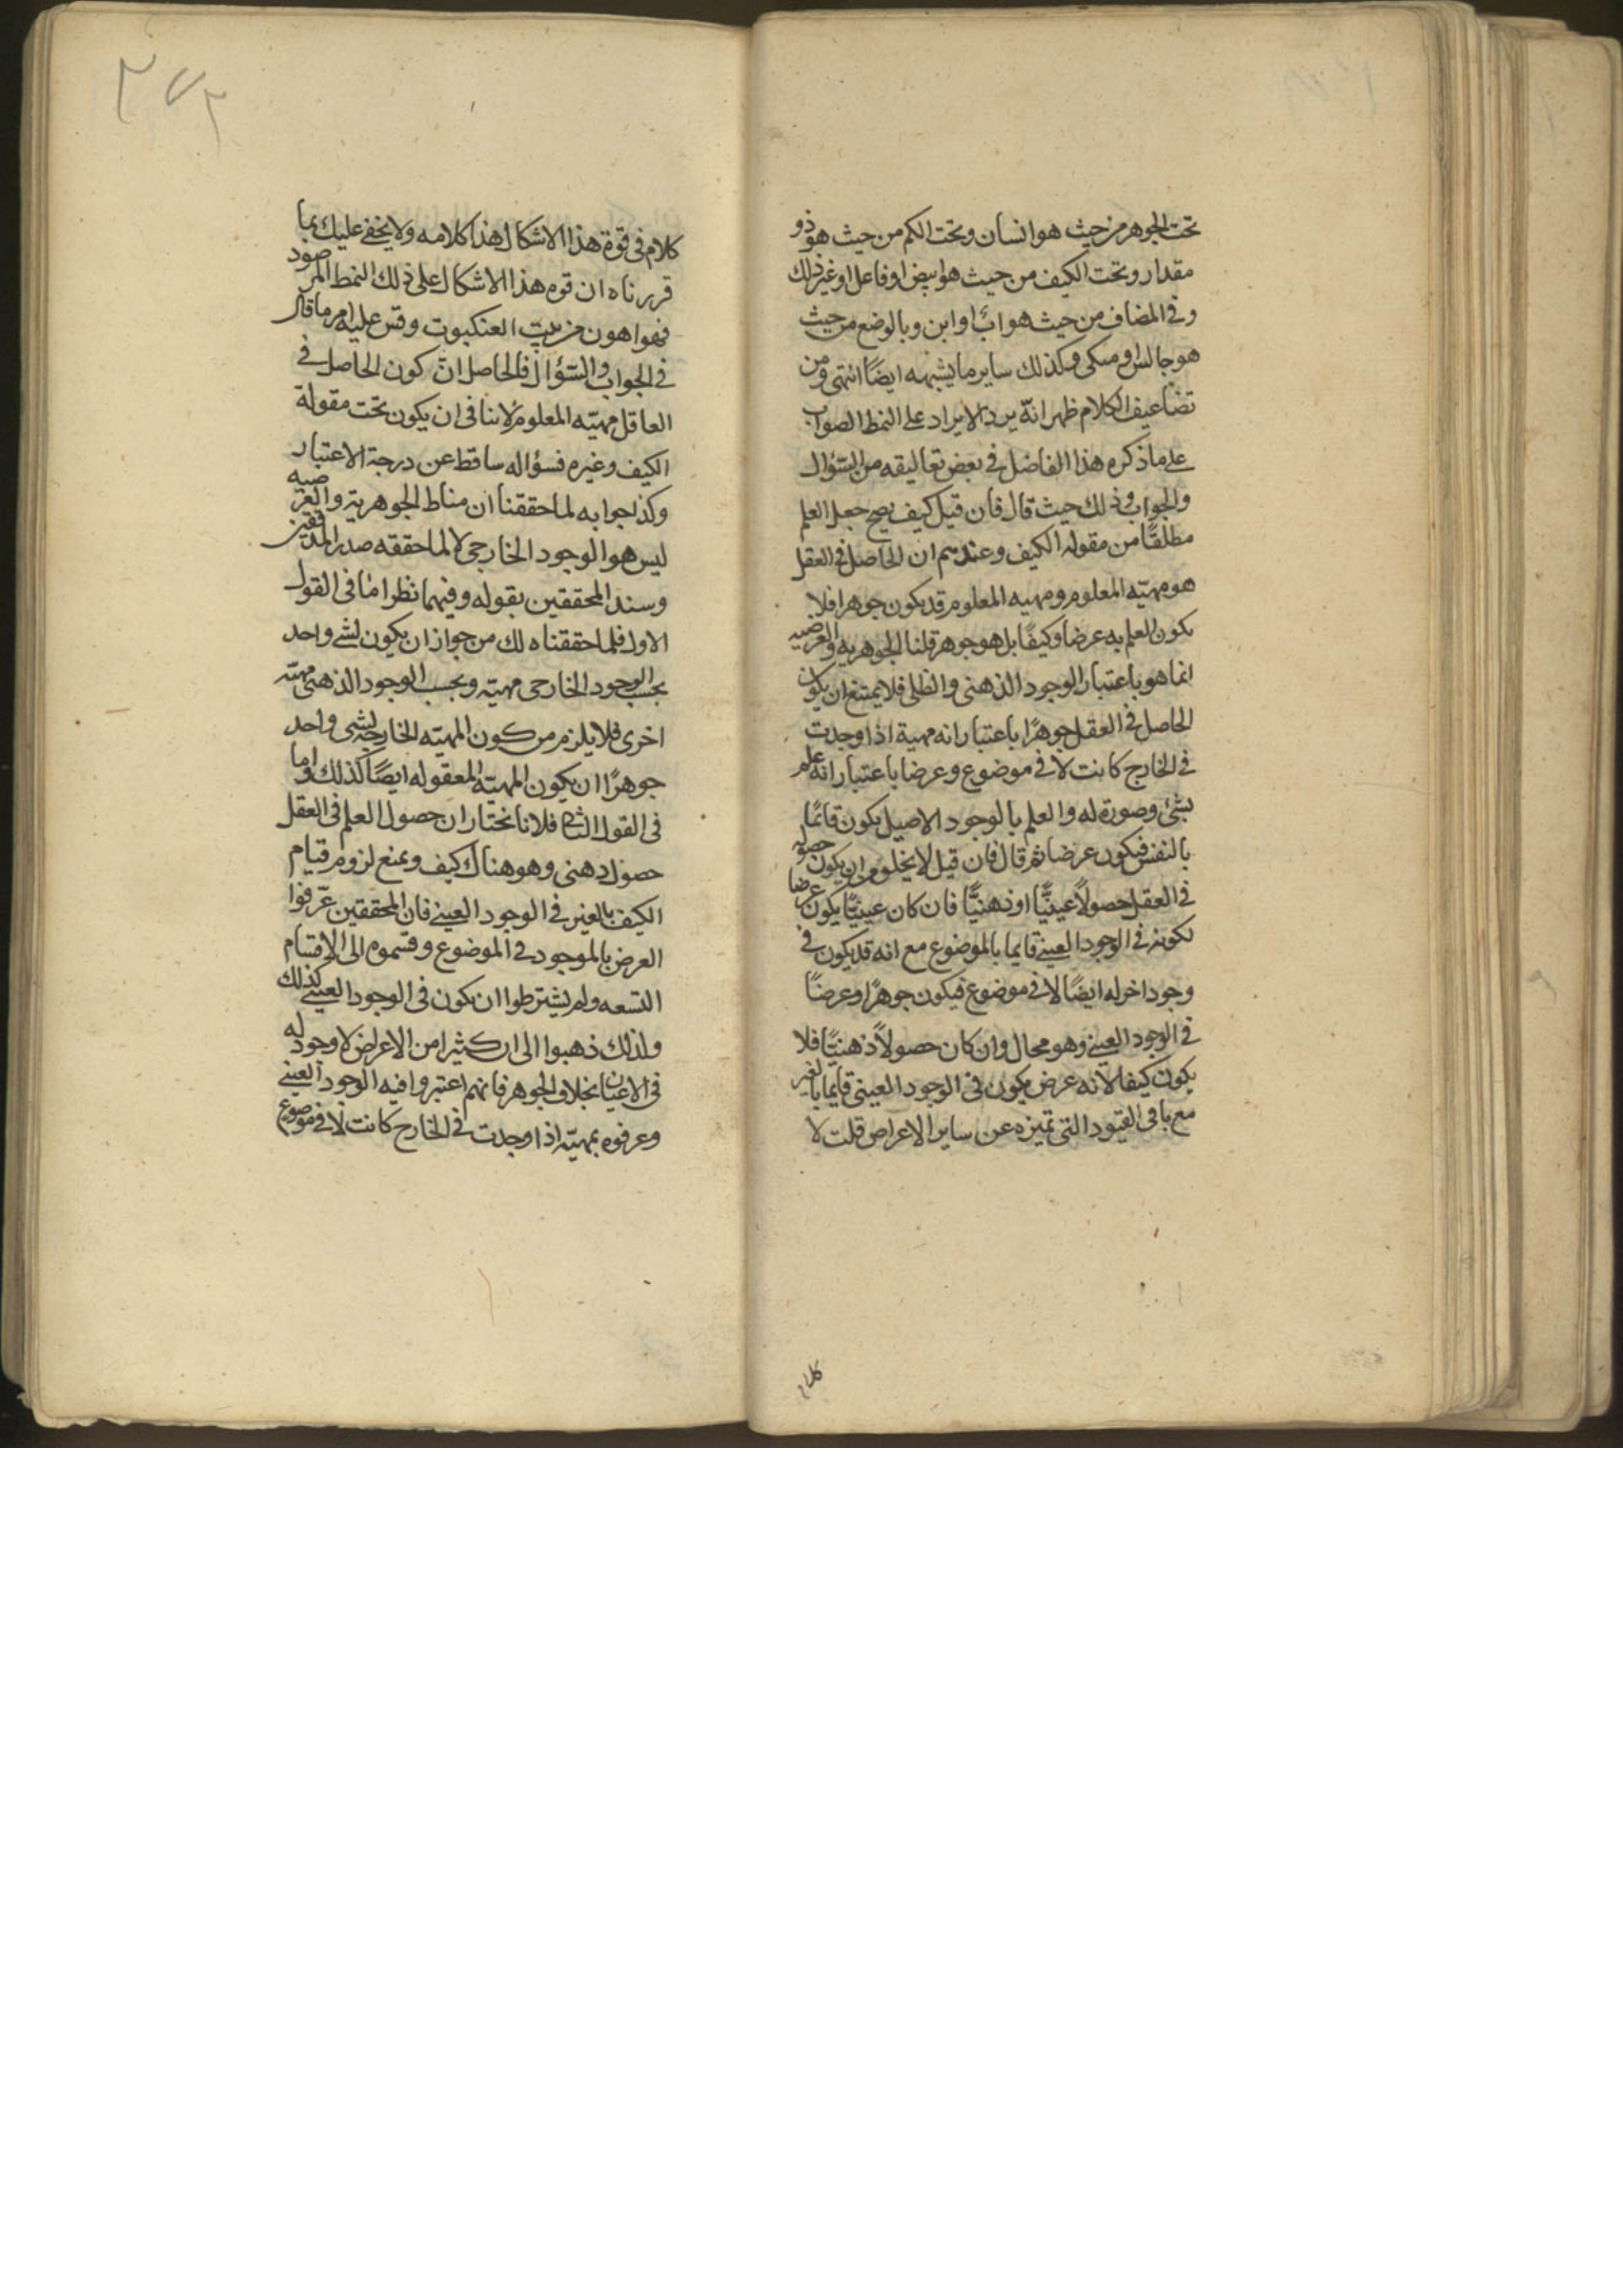 تحت الجوهر من حيث هو انسان وتحت الكم من حيث هو ذو
مقدار وتحت الكيف من حيث هو ابيض او فاعل او غير ذلك
وفى المضاف من حيث هو اب او ابن وبالوضع من حيث
هو جالس او متكى وكذلك ساير ما يشبهه ايضًا انتهى ومن
تضاعيف الكلام ظهر انّه يرد الايراد على النمط الصواب
على ما ذكره هذا الفاضل فى بعض تعاليقه من السّؤال
والجواب وذلك حيث قال فان قيل كيف يصح جعل العلم
مطلقًا من مقوله الكيف وعندهم ان الحاصل فى العقل
هو مهيّه المعلوم ومهيه المعلوم قد يكون جوهرا فلا
يكون العلم به عرضا وكيفًا بل هو جوهر قلنا الجوهريه والعرضيه
انما هو باعتبار الوجود الذهنى والظلى فلا يمتنع ان يكون
الحاصل فى العقل جوهرًا باعتبار انه مهية اذا وجدت
فى الخارج كانت لا فى موضوع وعرضا باعتبار انه علم
بشئ وصورة له والعلم بالوجود الاصيل يكون قائمًا
بالنفس فيكون عرضا ثم قال فان قيل لا يخلو من ان يكون حصوله
فى العقل حصولاً عينيًّا او ذهنيًّا فان كان عينيًّا يكون عرضا
لكونه فى الوجود العينى قايما بالموضوع مع انه قد يكون فى
وجود اخر له ايضًا لا فى موضوع فيكون جوهرًا وعرضًا
فى الوجود العينى وهو محال وان كان حصولاً ذهنيًّا فلا
يكون كيفا لانه عرض يكون فى الوجود العينى قايما بالغير
مع باقى القيود التى تميزه عن ساير الاعراض قلت لا
كلام
٢٧٢
كلام فى قوة هذا الاشكال هذا كلامه ولا يخفى عليك بما
قررناه ان قوه هذا الاشكال على ذلك النمط المرصود
فهو اهون من بيت العنكبوت وقس عليه امر ما قال
فى الجواب والسّؤال فالحاصل انّ كون الحاصل فى
العاقل مهيّه المعلوم لا ينافى ان يكون تحت مقولة
الكيف وغيره فسؤاله ساقط عن درجة الاعتبار
وكذا جوابه لما حققنا ان مناط الجوهرية والعرضيه
ليس هو الوجود الخارجى لا لما حققه صدر المدققين
وسند المحققين بقوله وفيهما نظر امّا فى القول
الاول فلما حققناه لك من جواز ان يكون لشئ واحد
بحسب الوجود الخارجى مهيّه وبحسب الوجود الذهنى مهيّه
اخرى فلا يلزم من كون المهيّه الخارجيه لشى واحد
جوهرًا ان يكون المهيّه المعقوله ايضًا كذلك واما
فى القول الثانى فلانا نختار ان حصول العلم فى العقل
حصول ذهنى وهو هناك كيف ويمنع لزوم قيام
الكيف بالغير فى الوجود العينى فان المحققين عرّفوا
العرض بالموجود فى الموضوع وقسموه الى الاقسام
التسعه ولم يشترطوا ان يكون فى الوجود العينى كذلك
ولذلك ذهبوا الى ان كثيرا من الاعراض لا وجود له
فى الاعيان بخلاف الجوهر فانهم اعتبروا فيه الوجود العينى
وعرفوه بمهيّه اذا وجدت فى الخارج كانت لا فى موضوع